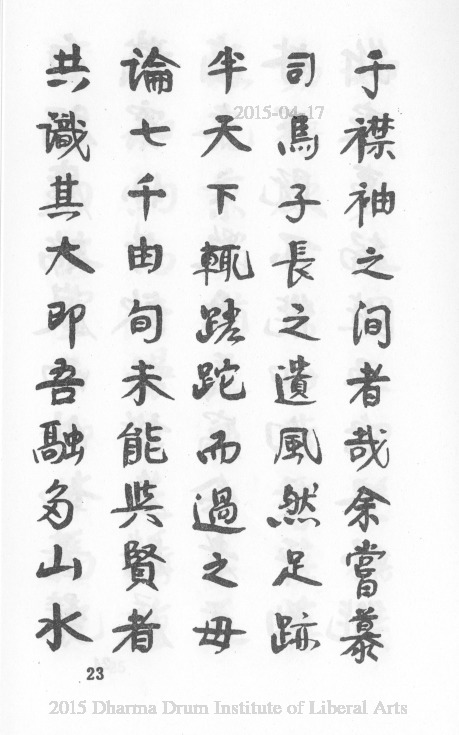 于襟袖之間者哉余嘗慕
司馬子長之遺風然足跡
半天下輒蹉跎而過之毋
論七千由旬未能與賢者
共識其大即吾融多山水
2015-04-17
23
2015 Dharma Drum Institute of Liberal Arts